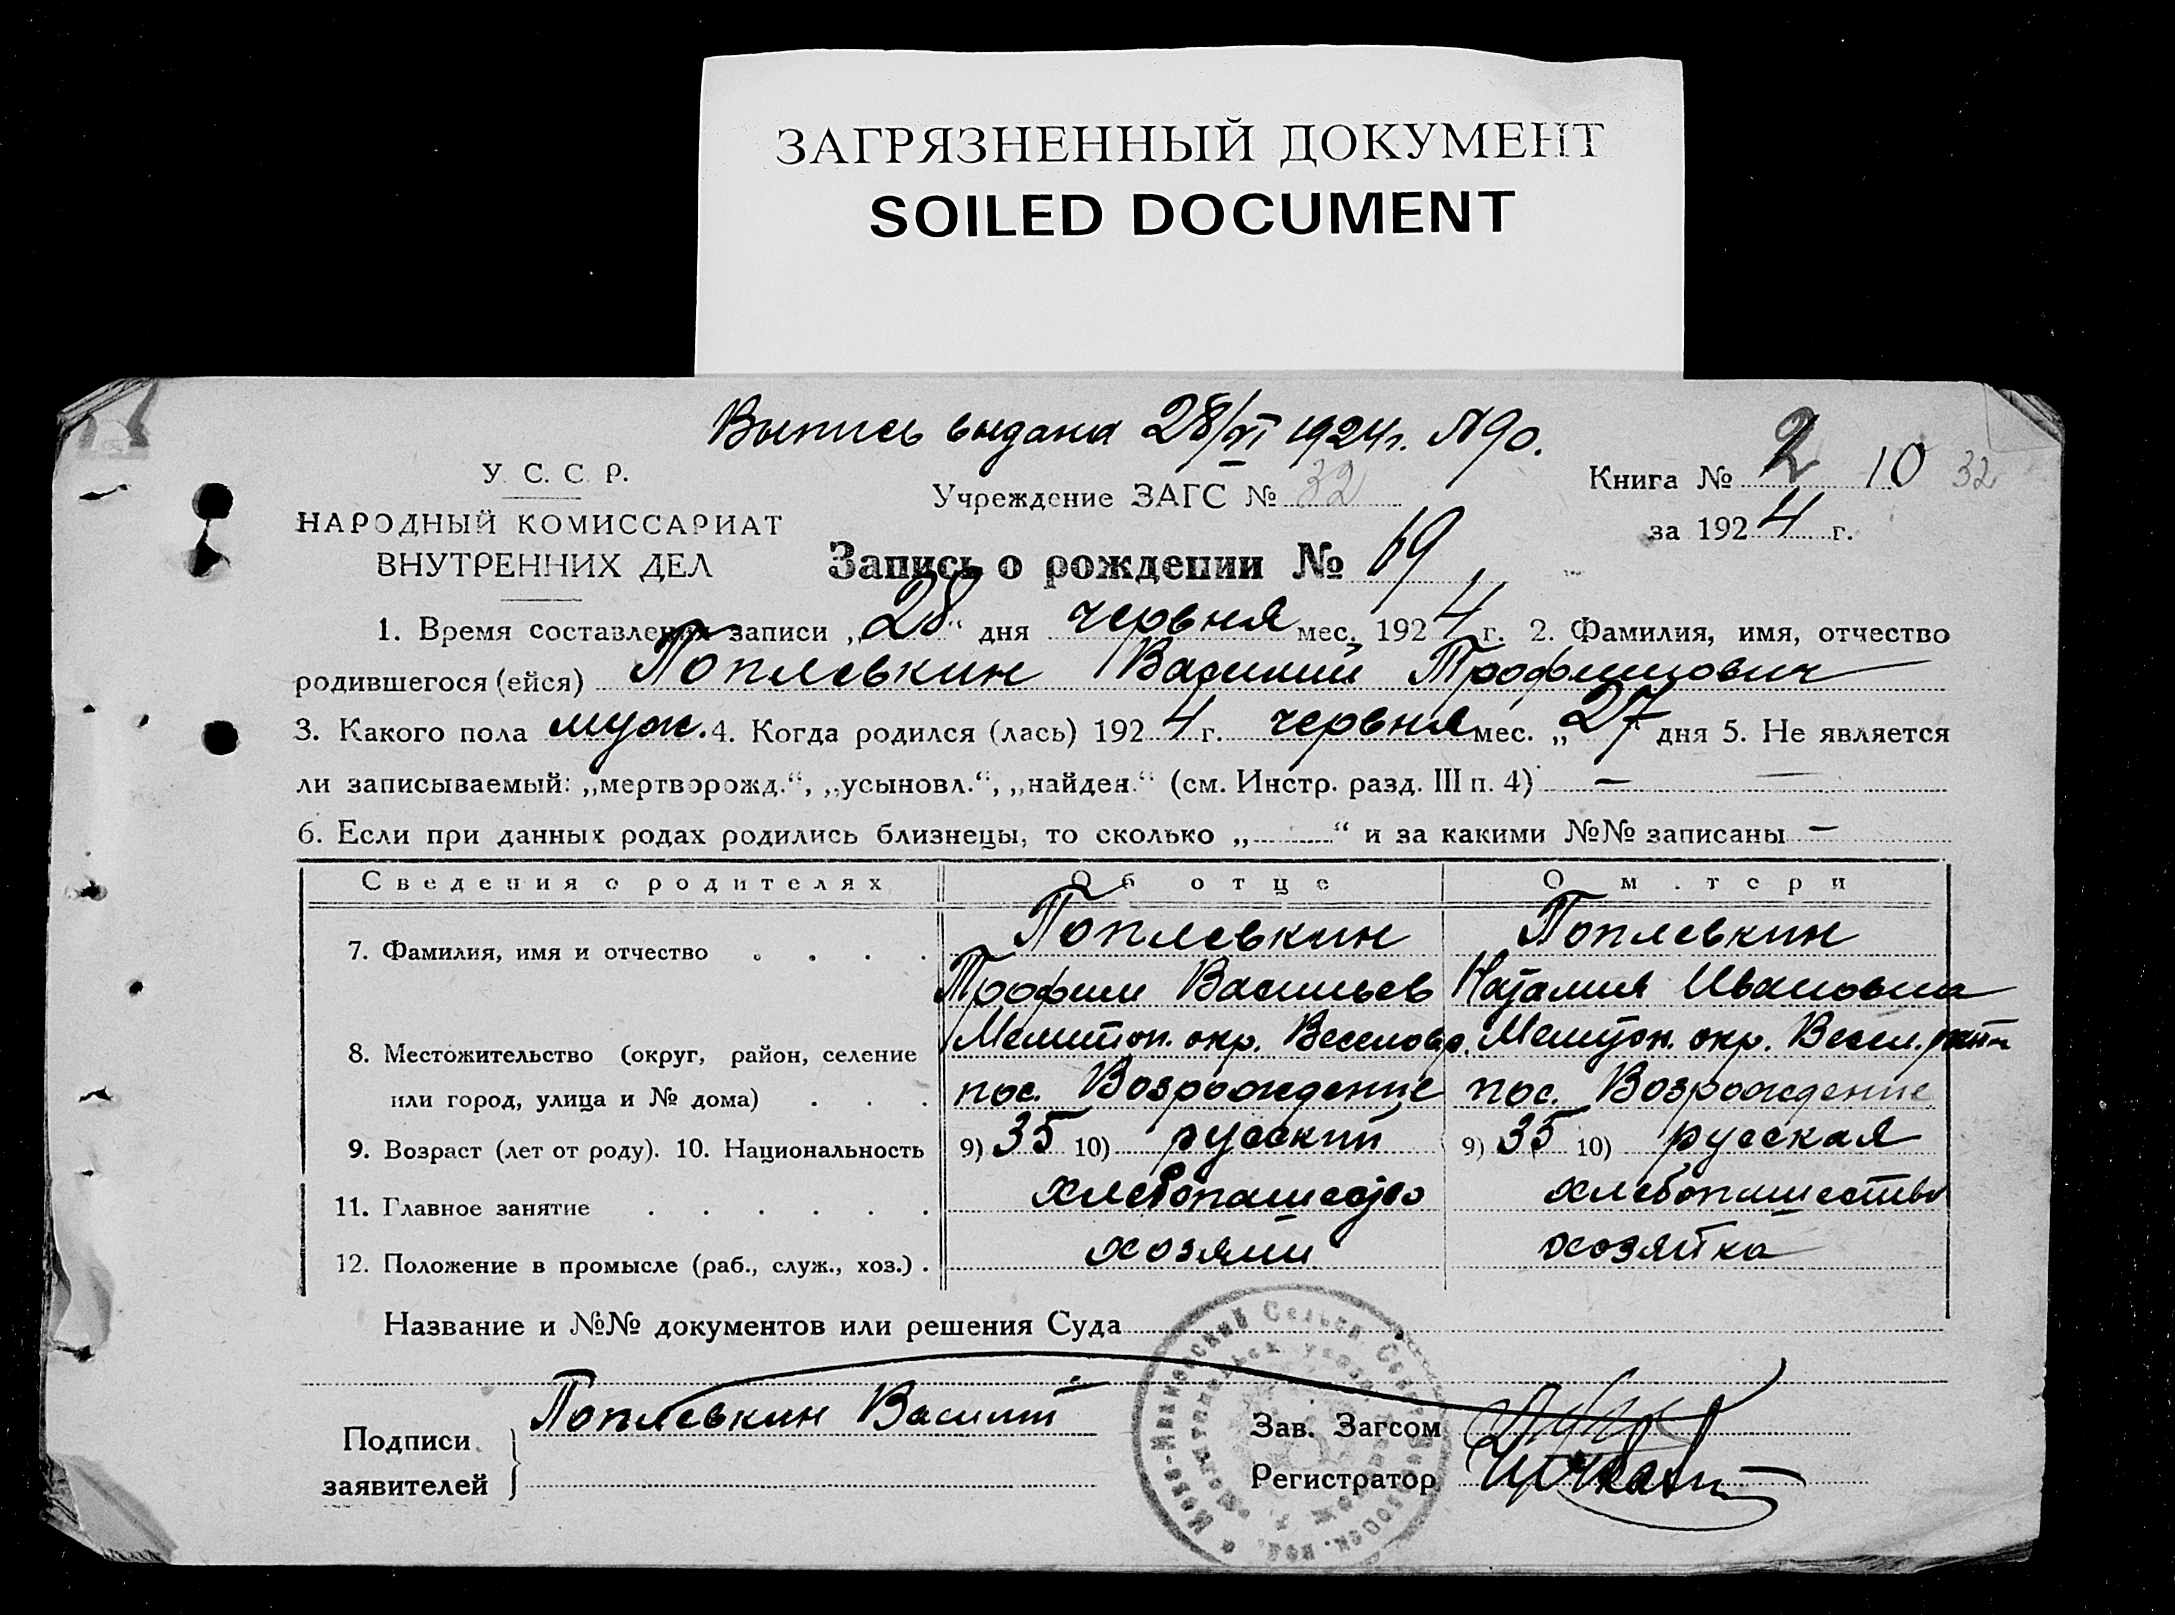 ЗАГРЯЗНЕННЫЙ ДОКУМЕНТ
SOILED DOCUMENT
Выпись выдана 28/VI 1924г. №90.
У. С. С. Р.
НАРОДНЫЙ КОМИССАРИАТ
ВНУТРЕННИХ ДЕЛ
Учреждение ЗАГС № 32
Книга № 2 10 32
за 1924 г.
Запись о рождении № 69
1. Время составления записи „28“ дня червня мес. 1924 г. 2. Фамилия, имя, отчество
родившегося (ейся) Поплевкин Василий Трофимович
3. Какого пола муж. 4. Когда родился (лась) 1924 г. червня мес. „27“ дня 5. Не является
ли записываемый: „мертворожд.“, „усыновл.“, „найден.“ (см. Инстр. разд. III п. 4) —
6. Если при данных родах родились близнецы, то сколько „ “ и за какими №№ записаны —
Сведения о родителях Об отце О матери
7. Фамилия, имя и отчество Поплевкин Поплевкин
Трофим Васильев Наталия Ивановна
8. Местожительство (округ, район, селение Мелитоп. окр. Веселовр. Мелитоп. окр. Весел.
или город, улица и № дома) пос. Возрождение пос. Возрождение
9. Возраст (лет от роду). 10. Национальность 9) 35 10) русский 9) 35 10) русская
11. Главное занятие хлебопашество хлебопашество
12. Положение в промысле (раб., служ., хоз.) хозяин хозяйка
Название и №№ документов или решения Суда
Подписи
заявителей
Поплевкин Василий
Зав. Загсом
Регистратор